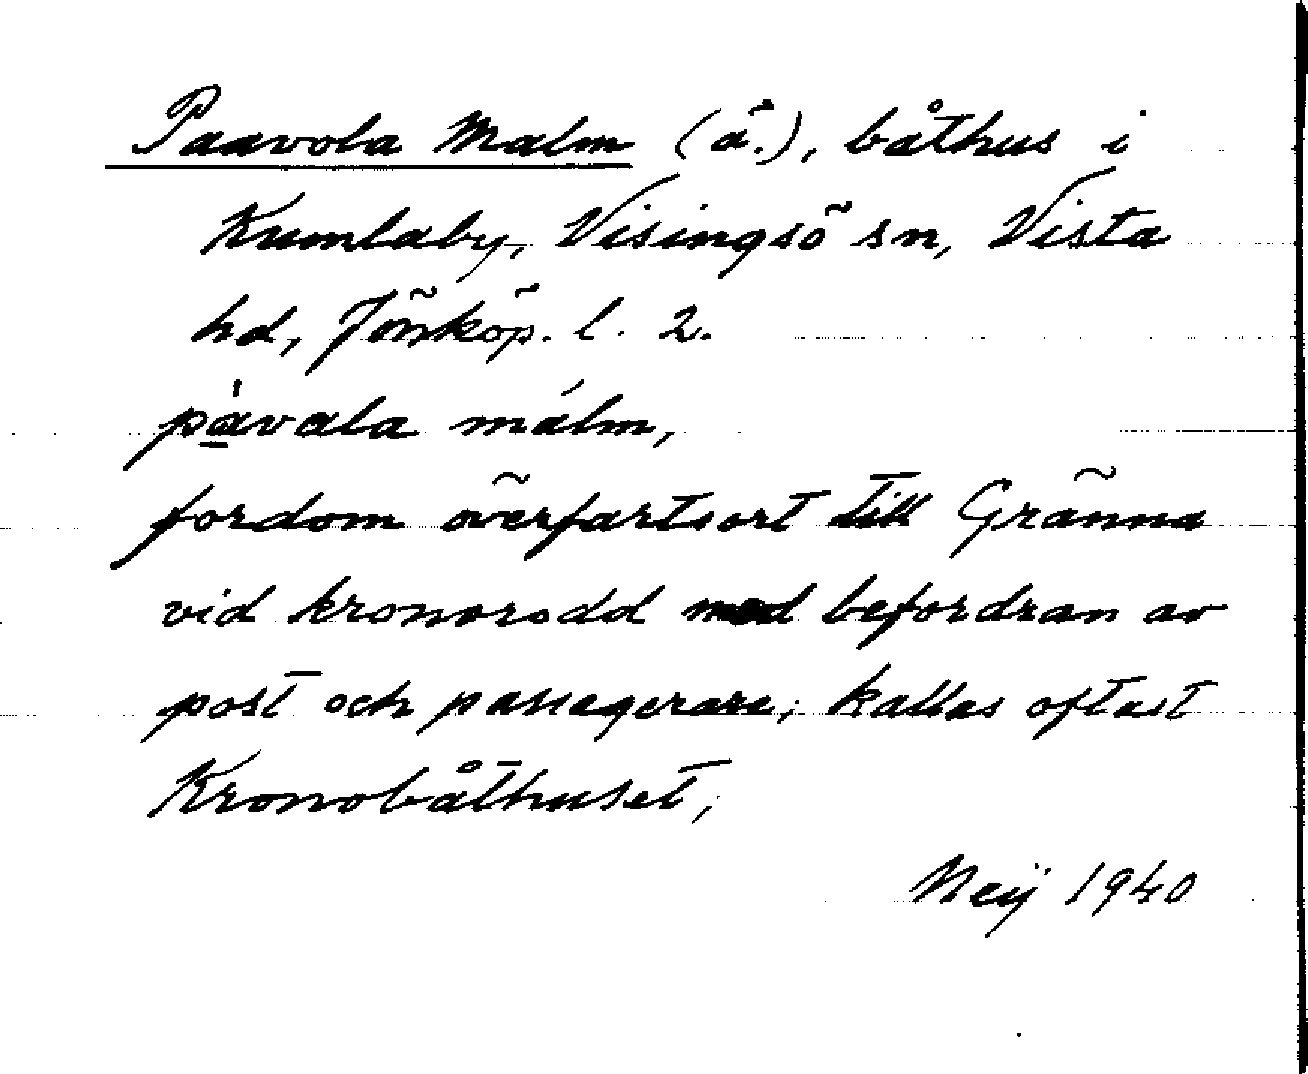 Paavola Malm (ä.), båthus i
Kumlaby, Visingsö sn, Vista
hd, Jönköp. l. 2.
pàvala málm,
fordom överfartsort till Gränna
vid kronorodd med befordran av
post och passagerare; kallas oftast
Kronobåthuset,
Neij 1940